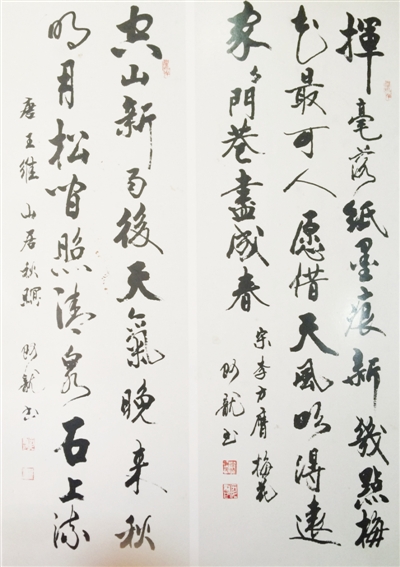 揮毫落紙墨痕新幾點梅
花最可人願借天風吹得遠
家々門巷盡成春
宋李方膺梅花
龍书
空山新雨後天氣晚來秋
明月松間照清泉石上流
唐王維山居秋暝 龍书